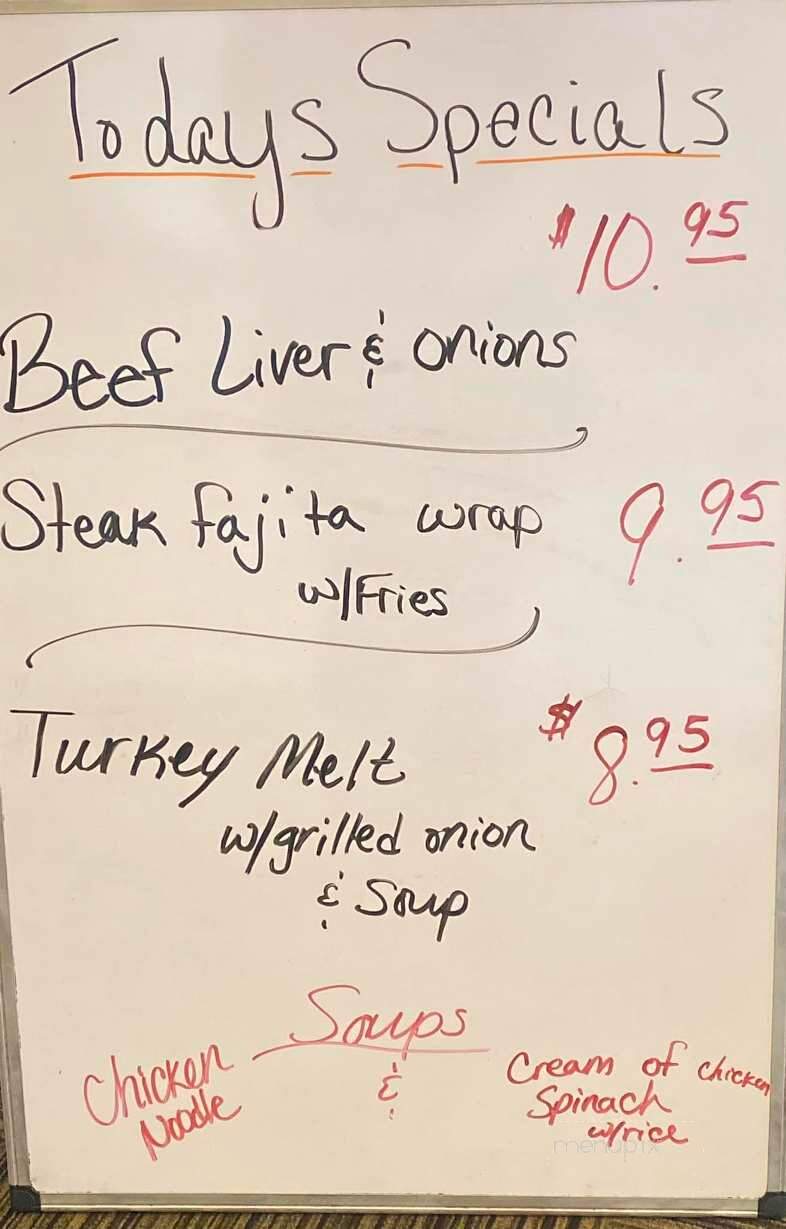 Todays Specials
$10.95
Beef Liver & onions
Steak fajita wrap 9.95
w/Fries
Turkey Melt $8.95
w/grilled onion
& Soup
Soups
Chicken
Noodle
&
Cream of chicken
Spinach
w/rice
menupix